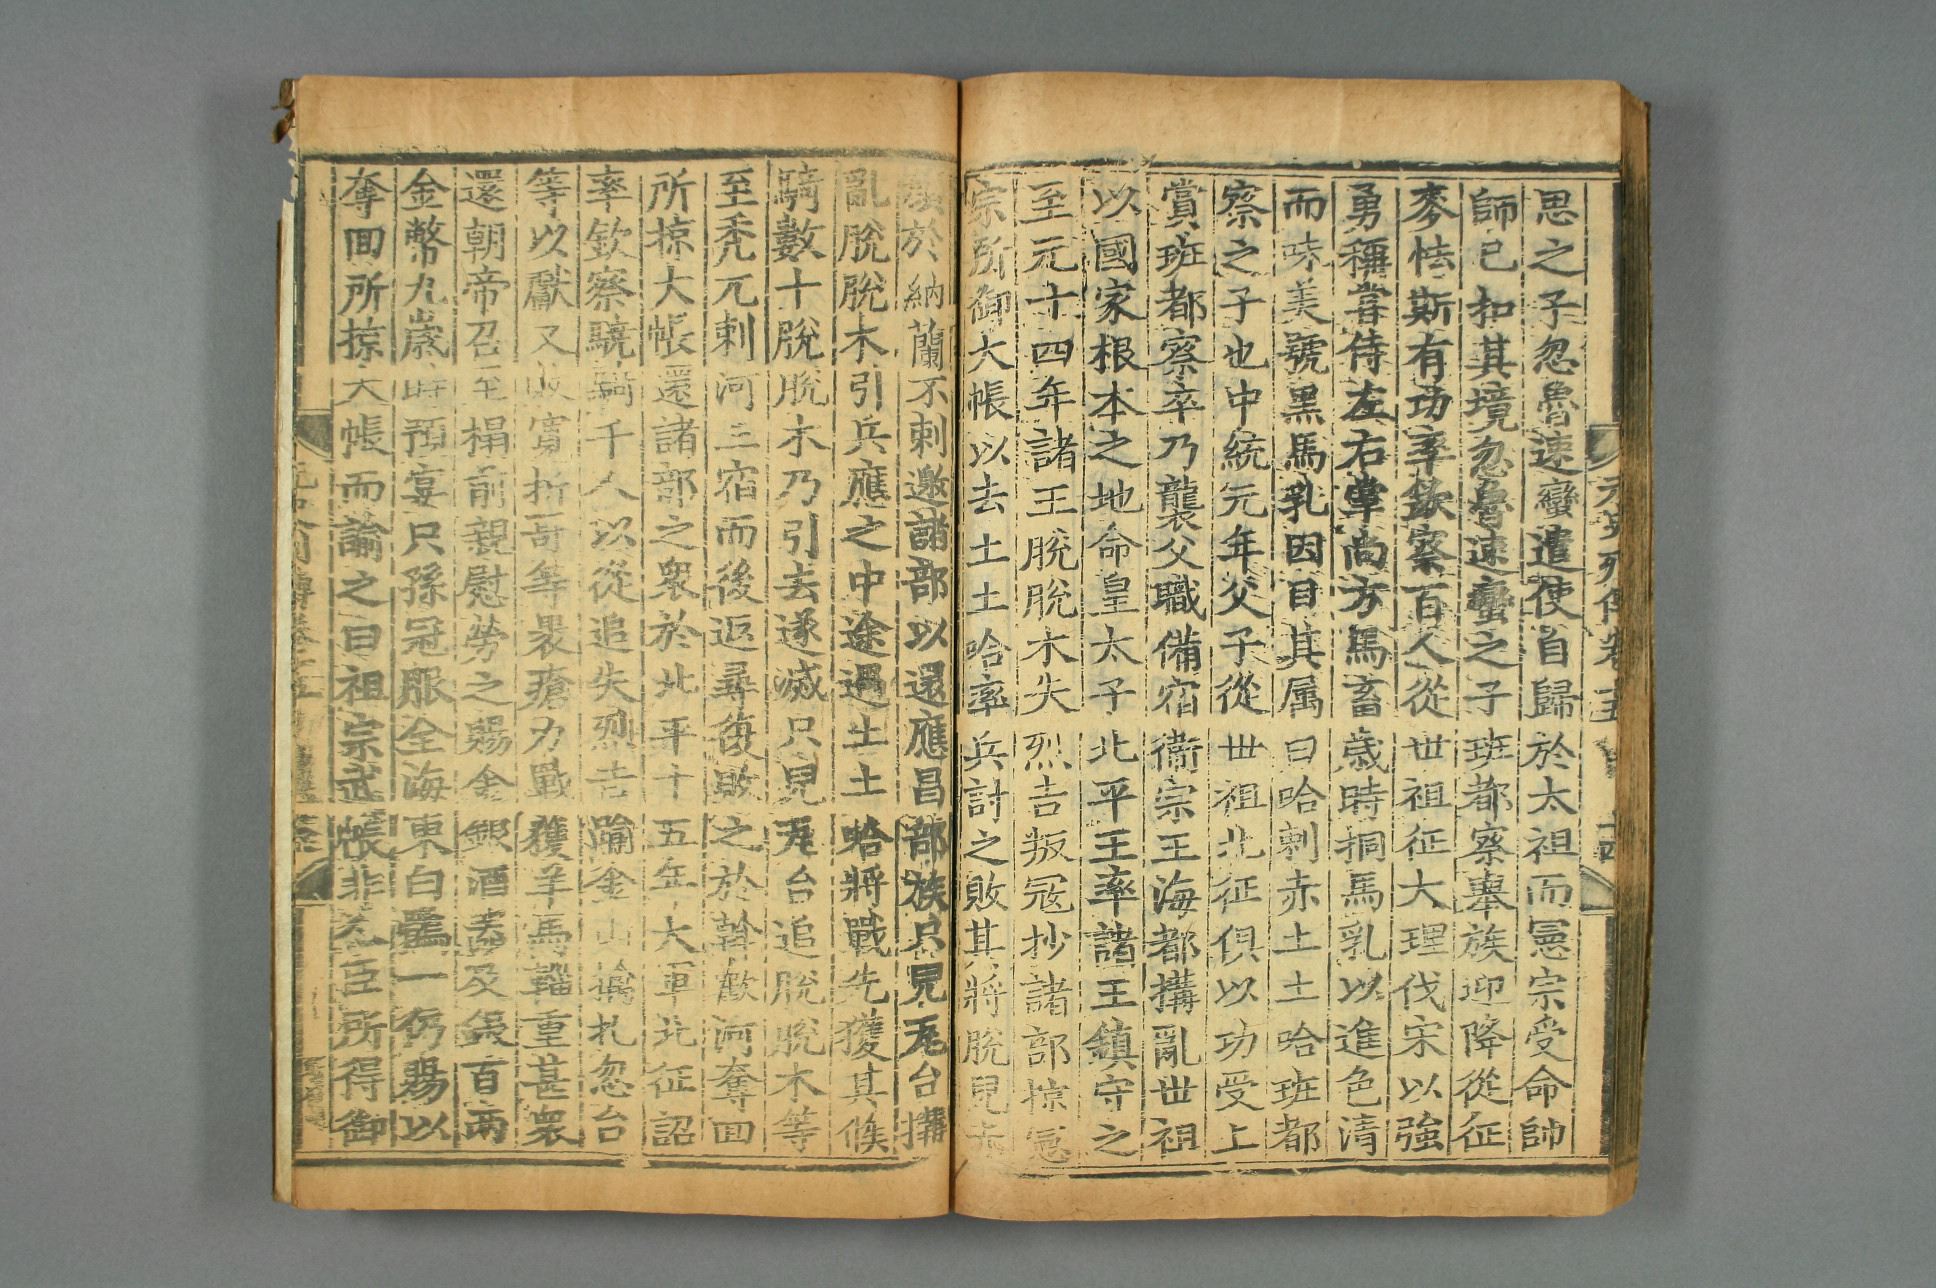 思之子忽魯速蠻遣使自歸於太祖而憲宗受命帥
師已扣其境忽魯速蠻之子班都察舉族迎降從征
麥怯斯有功率欽察百人從世祖征大理伐宋以強
勇稱嘗侍左右掌尚方馬畜歲時挏馬乳以進色清
而味美號黑馬乳因目其属曰哈剌赤土土哈班都
察之子也中統元年父子從世祖北征俱以功受上
賞班都察卒乃襲父職備宿衞宗王海都搆亂世祖
以國家根本之地命皇太子北平王率諸王鎮守之
至元十四年諸王脫脫木失烈吉叛冦抄諸部掠憲
宗所御大帳以去土土哈率兵討之敗其將脫兒赤
顏於納蘭不剌邀諸部以還應昌部族只兒瓦台搆
亂脫脫木引兵應之中途遇土土哈將戰先獲其候
騎數十脫脫木乃引去遂滅只兒瓦台追脫脫木等
至禿兀剌河三宿而後返尋復敗之於斡歡河奪回
所掠大帳還諸部之衆於北平十五年大軍北征詔
率欽察驍騎千人以從追失烈吉踰金山擒扎忽台
等以獻又敗寬折哥等裹瘡力戰獲羊馬輜重甚衆
還朝帝召至榻前親慰勞之賜金銀酒器及銀百兩
金幣九歲時預宴只孫冠服全海東白鶻一仍賜以
奪回所掠大帳而諭之曰祖宗武帳非人臣所得御